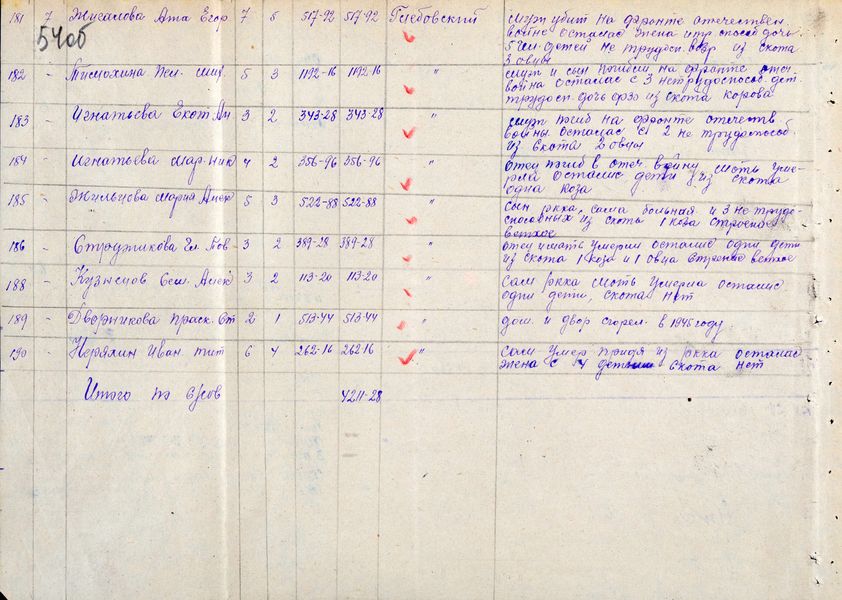 181 7 Жусалова Ата Егор 7 5 517-92 517-92 Глебовский муж убит на фронте отечествен.
54об войне осталас жена и тр. способ дочь
5 чел. детей не трудосп. возр из скота
3 овцы
182 - Тимохина Пел. 5 3 1192-16 1192-16 " муж и сын погибли на фронте отеч
война осталас с 3 нетрудоспособ. дет.
трудосп. дочь фзо из скота корова
183 - Игнатьева Екат. Ан 3 2 343-28 343-28 " муж погиб на фронте отечеств
войны. осталас с 2 не трудоспособ
из скота 2 овцы
184 - Игнатьева Мар. Ник 4 2 356-96 356-96 " отец погиб в отеч. войну мать уме-
рла осталис дети из скота
одна коза
185 - Жильцова Мария Алек 5 3 522-88 522-88 " сын ркка, сама больная и 3 не трудо-
способных из скота 1 коза строение
ветхое
186 - Гл. 3 2 389-28 389-28 " отец и мать умерли остались одни дети
из скота 1 коза и 1 овца строение ветхое
188 - Кузнецов Сем. Алек 3 2 113-20 113-20 " Сам ркка мать умерла осталис
одни дети, скота нет
189 - Дворникова Праск. Ст 2 1 513-44 513-44 " дом. и двор сгорел. в 1945 году
190 - Нерялин Иван Тит 6 4 262-16 262 16 " Сам умер придя из ркка осталас
жена с 4 детьми скота нет
Итого по с/сов 4211-28